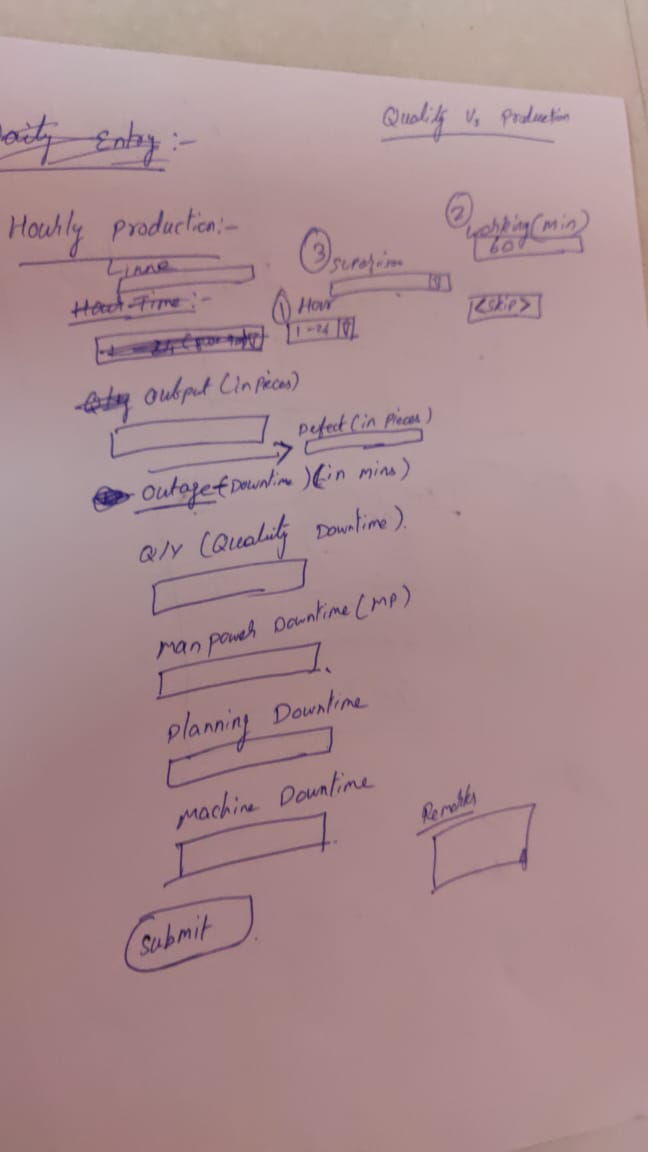 Daily Entry :-
Quality Vs Production
Hourly Production:-
② working(min)
60
③
① Hour
1-24
<skip>
Qty Output (in pieces)
Defect (in pieces)
Outage (Downtime) (in mins)
Q/Y (Quality Downtime).
Man power Downtime (MP)
Planning Downtime
Machine Downtime
Remarks
Submit